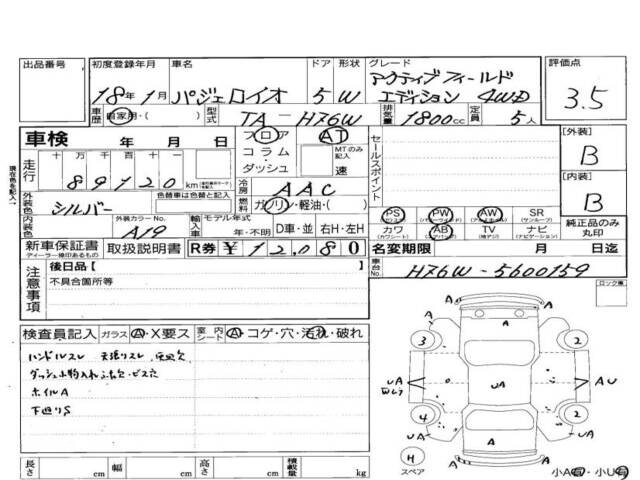 出品番号 初度登録年月 車名 ドア 形状 グレード 評価点
18年1月 パジェロイオ 5 W アクティブフィールド
エディション 4WD 3.5
車歴 自家用・( ) 型式 TA-H76W 排気量 1800cc 定員 5人
車検 年 月 日 フロア AT
コラム・ダッシュ MTのみ記入 速
セールスポイント
[外装] B
走行 十万千百十一
89120 km
冷房 AAC
[内装] B
外装色 シルバー 色替車は色替と記入 燃料 ガソリン・軽油・( )
内装色 外装カラーNo. A19 輸入車 モデル年式 年・不明 D車・並 右H・左H
PS PW AW SR (サンルーフ) 純正品のみ丸印
カワ (カワシート) AB TV ナビ (ナビゲーション)
新車保証書 ディーラー捺印あるもの 取扱説明書 R券 ¥12,080 名変期限 月 日迄
注意事項 後日品【 】
不具合箇所等
車台No. H76W-5600159
ロック車
検査員記入 ガラス A・X要ス 室内シート A・コゲ・穴・汚れ・破れ
ハンドルスレ
ダッシュ小物入れ
ホイルA
下廻りS
A
A
3 2
A
UA UA AU
4 2
UA A UA
H
スペア
A
小A有・小U有
長さ cm 幅 cm 高さ cm 積載量 kg
現在色を記入